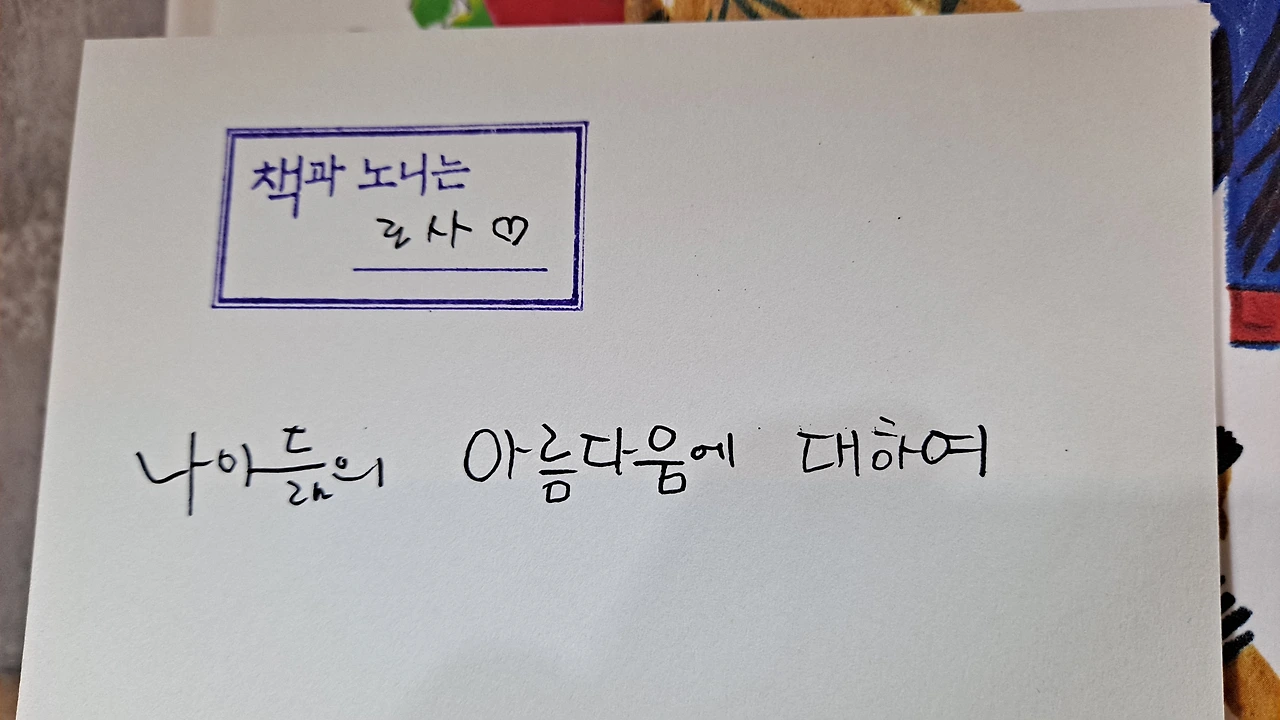 책과 노니는
로사 ♡
나이듦의 아름다움에 대하여